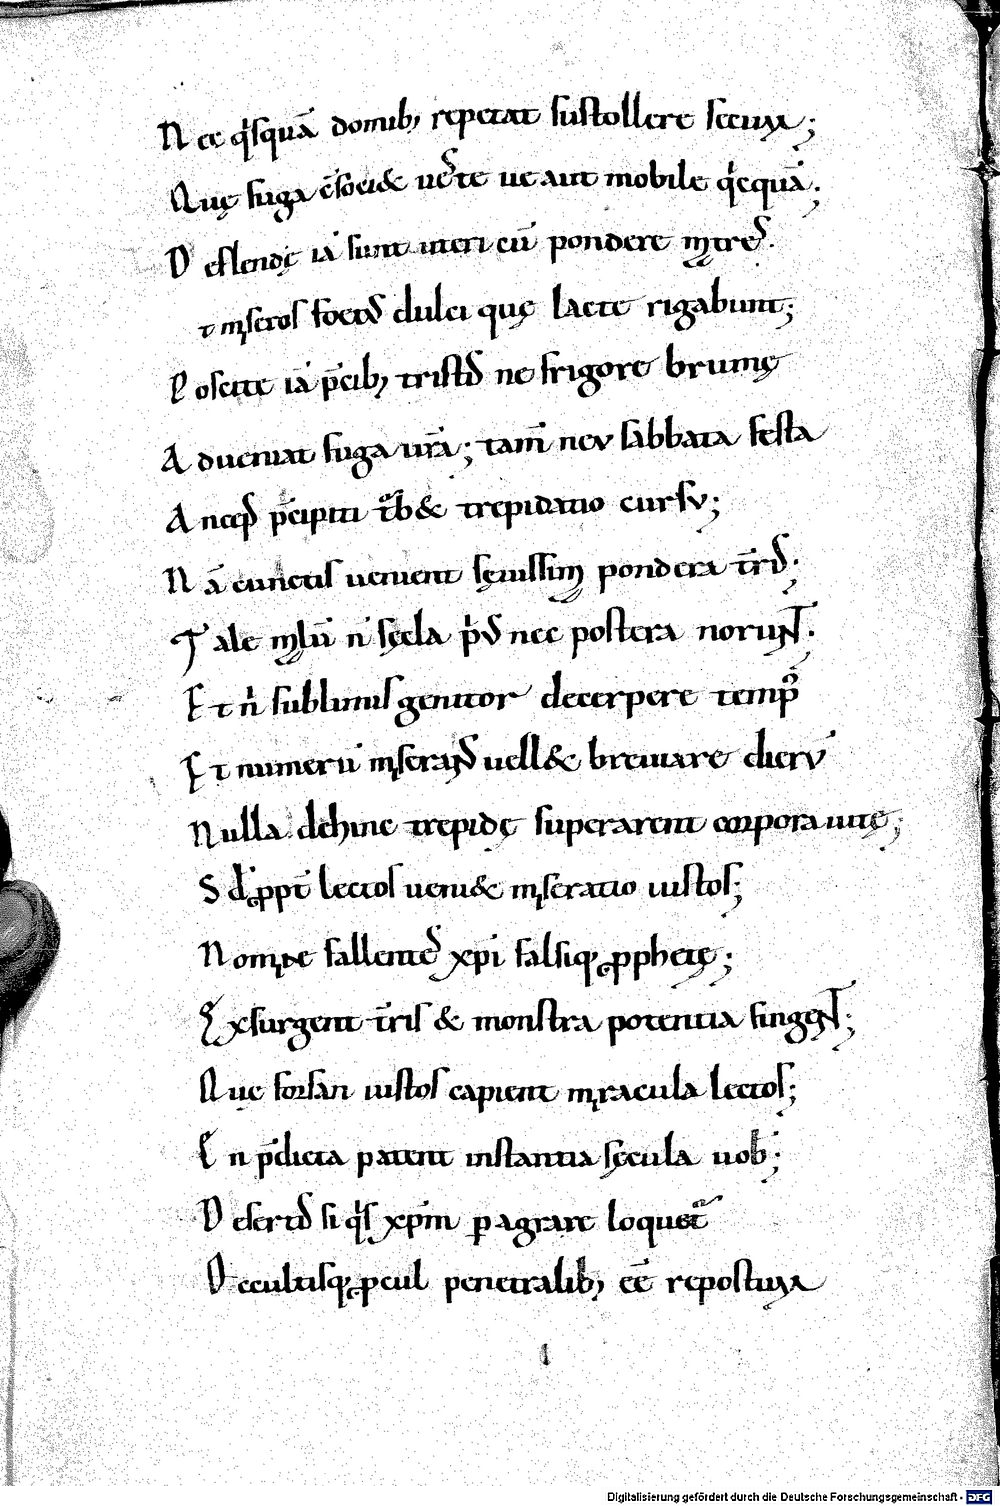 N ec q̍squā domib; repetat sustollere secum;
Q uę fuga c̄soci& uerte ue aut mobile q̍cquā;
D eflendę iā sunt uteri cū pondere matres.
t miseros foetus dulci quę lacte rigabunt;
P oscite iā p̄cib; tristis ne frigore brumę
A dueniat fuga ur̄a; tam̄ neu sabbata festa
A nceps p̄cipiti turb& trepidatio cursu;
N ā cunctis uenient sęuissima pondera t̄ris;
T ale malū n̄ sęcla prius nec postera norunt;
E t n̍ sublimis genitor decerpere tempora
E t numerū miserans uell& breuiare dierū
N ulla dehinc trepidę superarent corpora uitę;
S d̍ ꝓpt̄ lectos ueni& miseratio iustos;
N omine fallentes xp̄i falsiq; ꝓphetę;
E xsurgent t̄ris & monstra potentia fingent;
Q ue forsan iustos capient miracula lectos;
E n p̄dicta patent instantia sęcula uob̄;
D esertis si q̍s xp̄m ꝑagrare loquetur
O ccultisq; ꝓcul penetralib; eē repostum
Digitalisierung gefördert durch die Deutsche Forschungsgemeinschaft - DFG